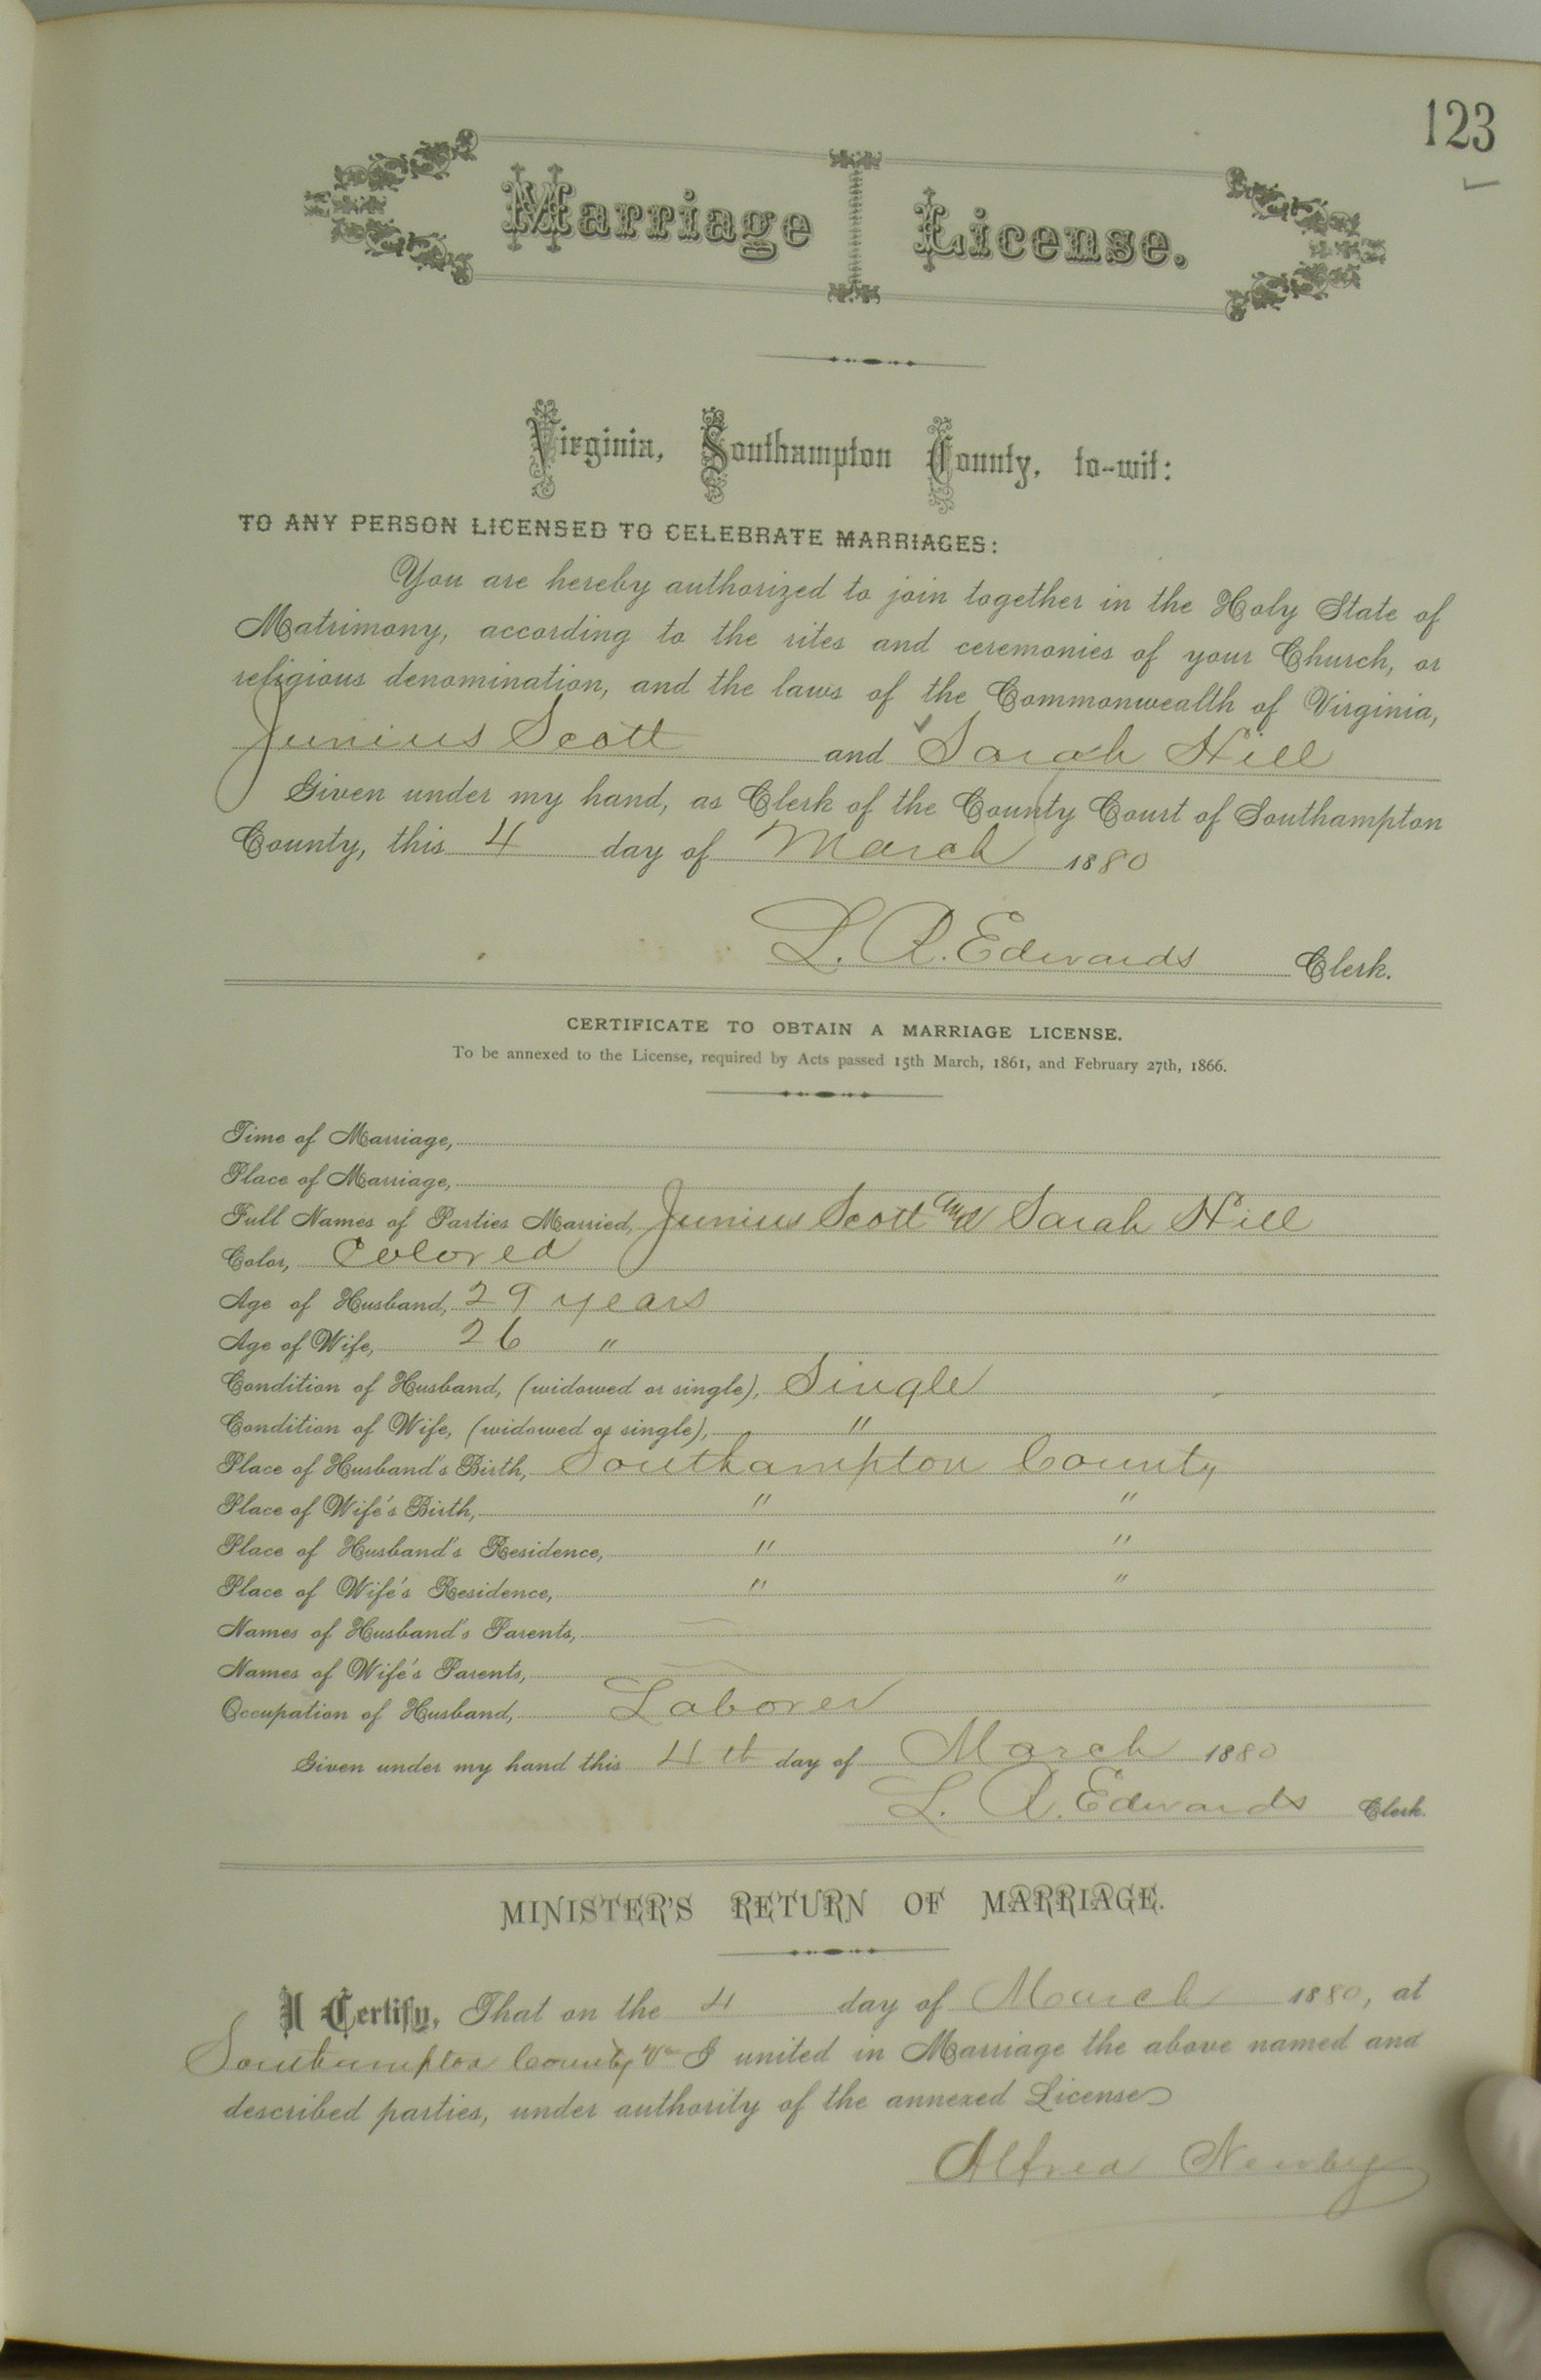 123
Marriage License.
Virginia, Southampton County, to-wit:
TO ANY PERSON LICENSED TO CELEBRATE MARRIAGES:
You are hereby authorized to join together in the Holy State of
Matrimony, according to the rites and ceremonies of your Church, or
religious denomination, and the laws of the Commonwealth of Virginia,
Junius Scott and Sarah Hill
Given under my hand, as Clerk of the County Court of Southampton
County, this 4 day of March 1880
L. R. Edwards Clerk.
CERTIFICATE TO OBTAIN A MARRIAGE LICENSE.
To be annexed to the License, required by Acts passed 15th March, 1861, and February 27th, 1866.
Time of Marriage,
Place of Marriage,
Full Names of Parties Married, Junius Scott and Sarah Hill
Color, Colored
Age of Husband, 29 years
Age of Wife, 26 "
Condition of Husband, (widowed or single), Single
Condition of Wife, (widowed or single), "
Place of Husband's Birth, Southampton County
Place of Wife's Birth, " "
Place of Husband's Residence, " "
Place of Wife's Residence, " "
Names of Husband's Parents,
Names of Wife's Parents,
Occupation of Husband, Laborer
Given under my hand this 4th day of March 1880
L. R. Edwards Clerk.
MINISTER'S RETURN OF MARRIAGE.
I Certify, That on the 4 day of March 1880, at
Southampton County Va I united in Marriage the above named and
described parties, under authority of the annexed License
Alfred Newby